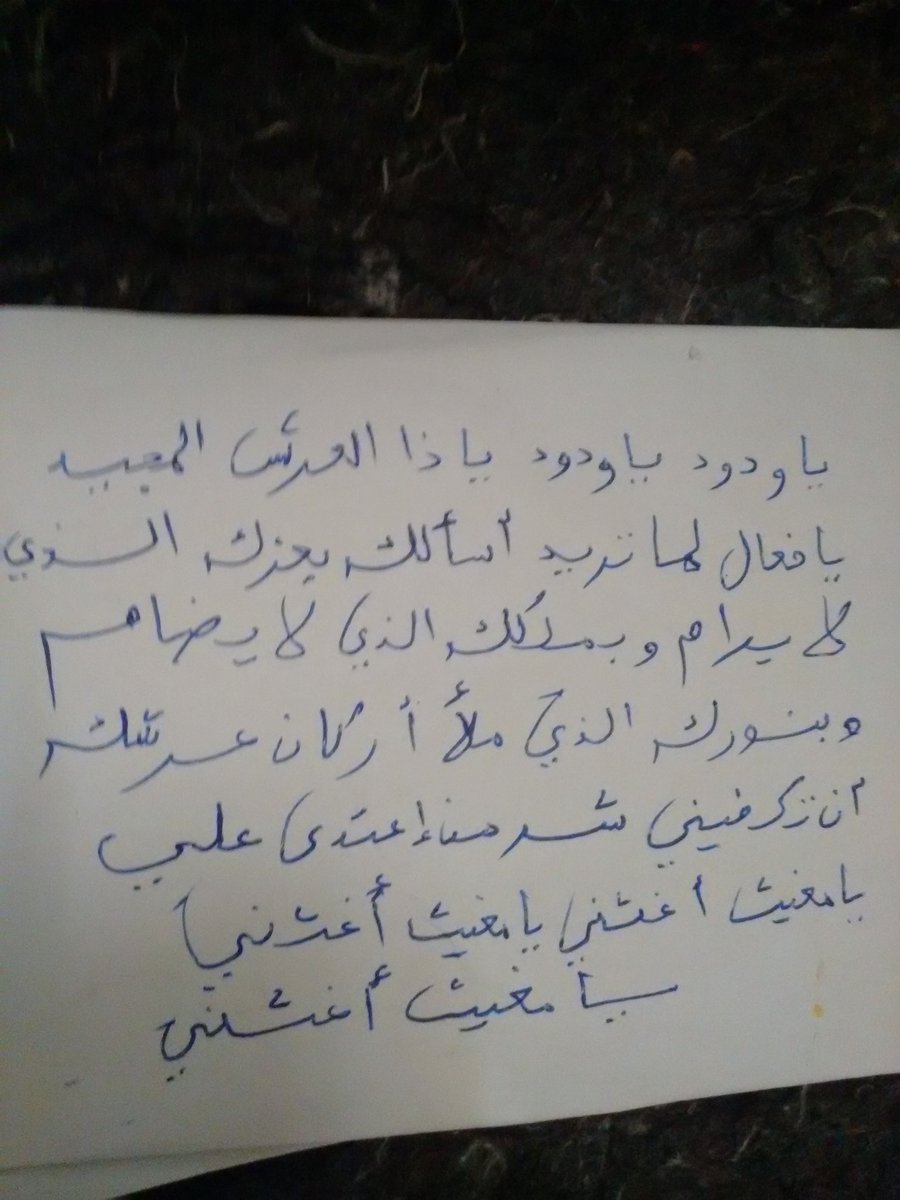 يا ودود يا ودود يا ذا العرش المجيد
يا فعال لما تريد أسألك بعزك الذي
لا يرام وبملكك الذي لا يضام
وبنورك الذي ملأ أركان عرشك
أن تكفيني شر من اعتدى علي
يا مغيث أغثني يا مغيث أغثني
يا مغيث أغثني